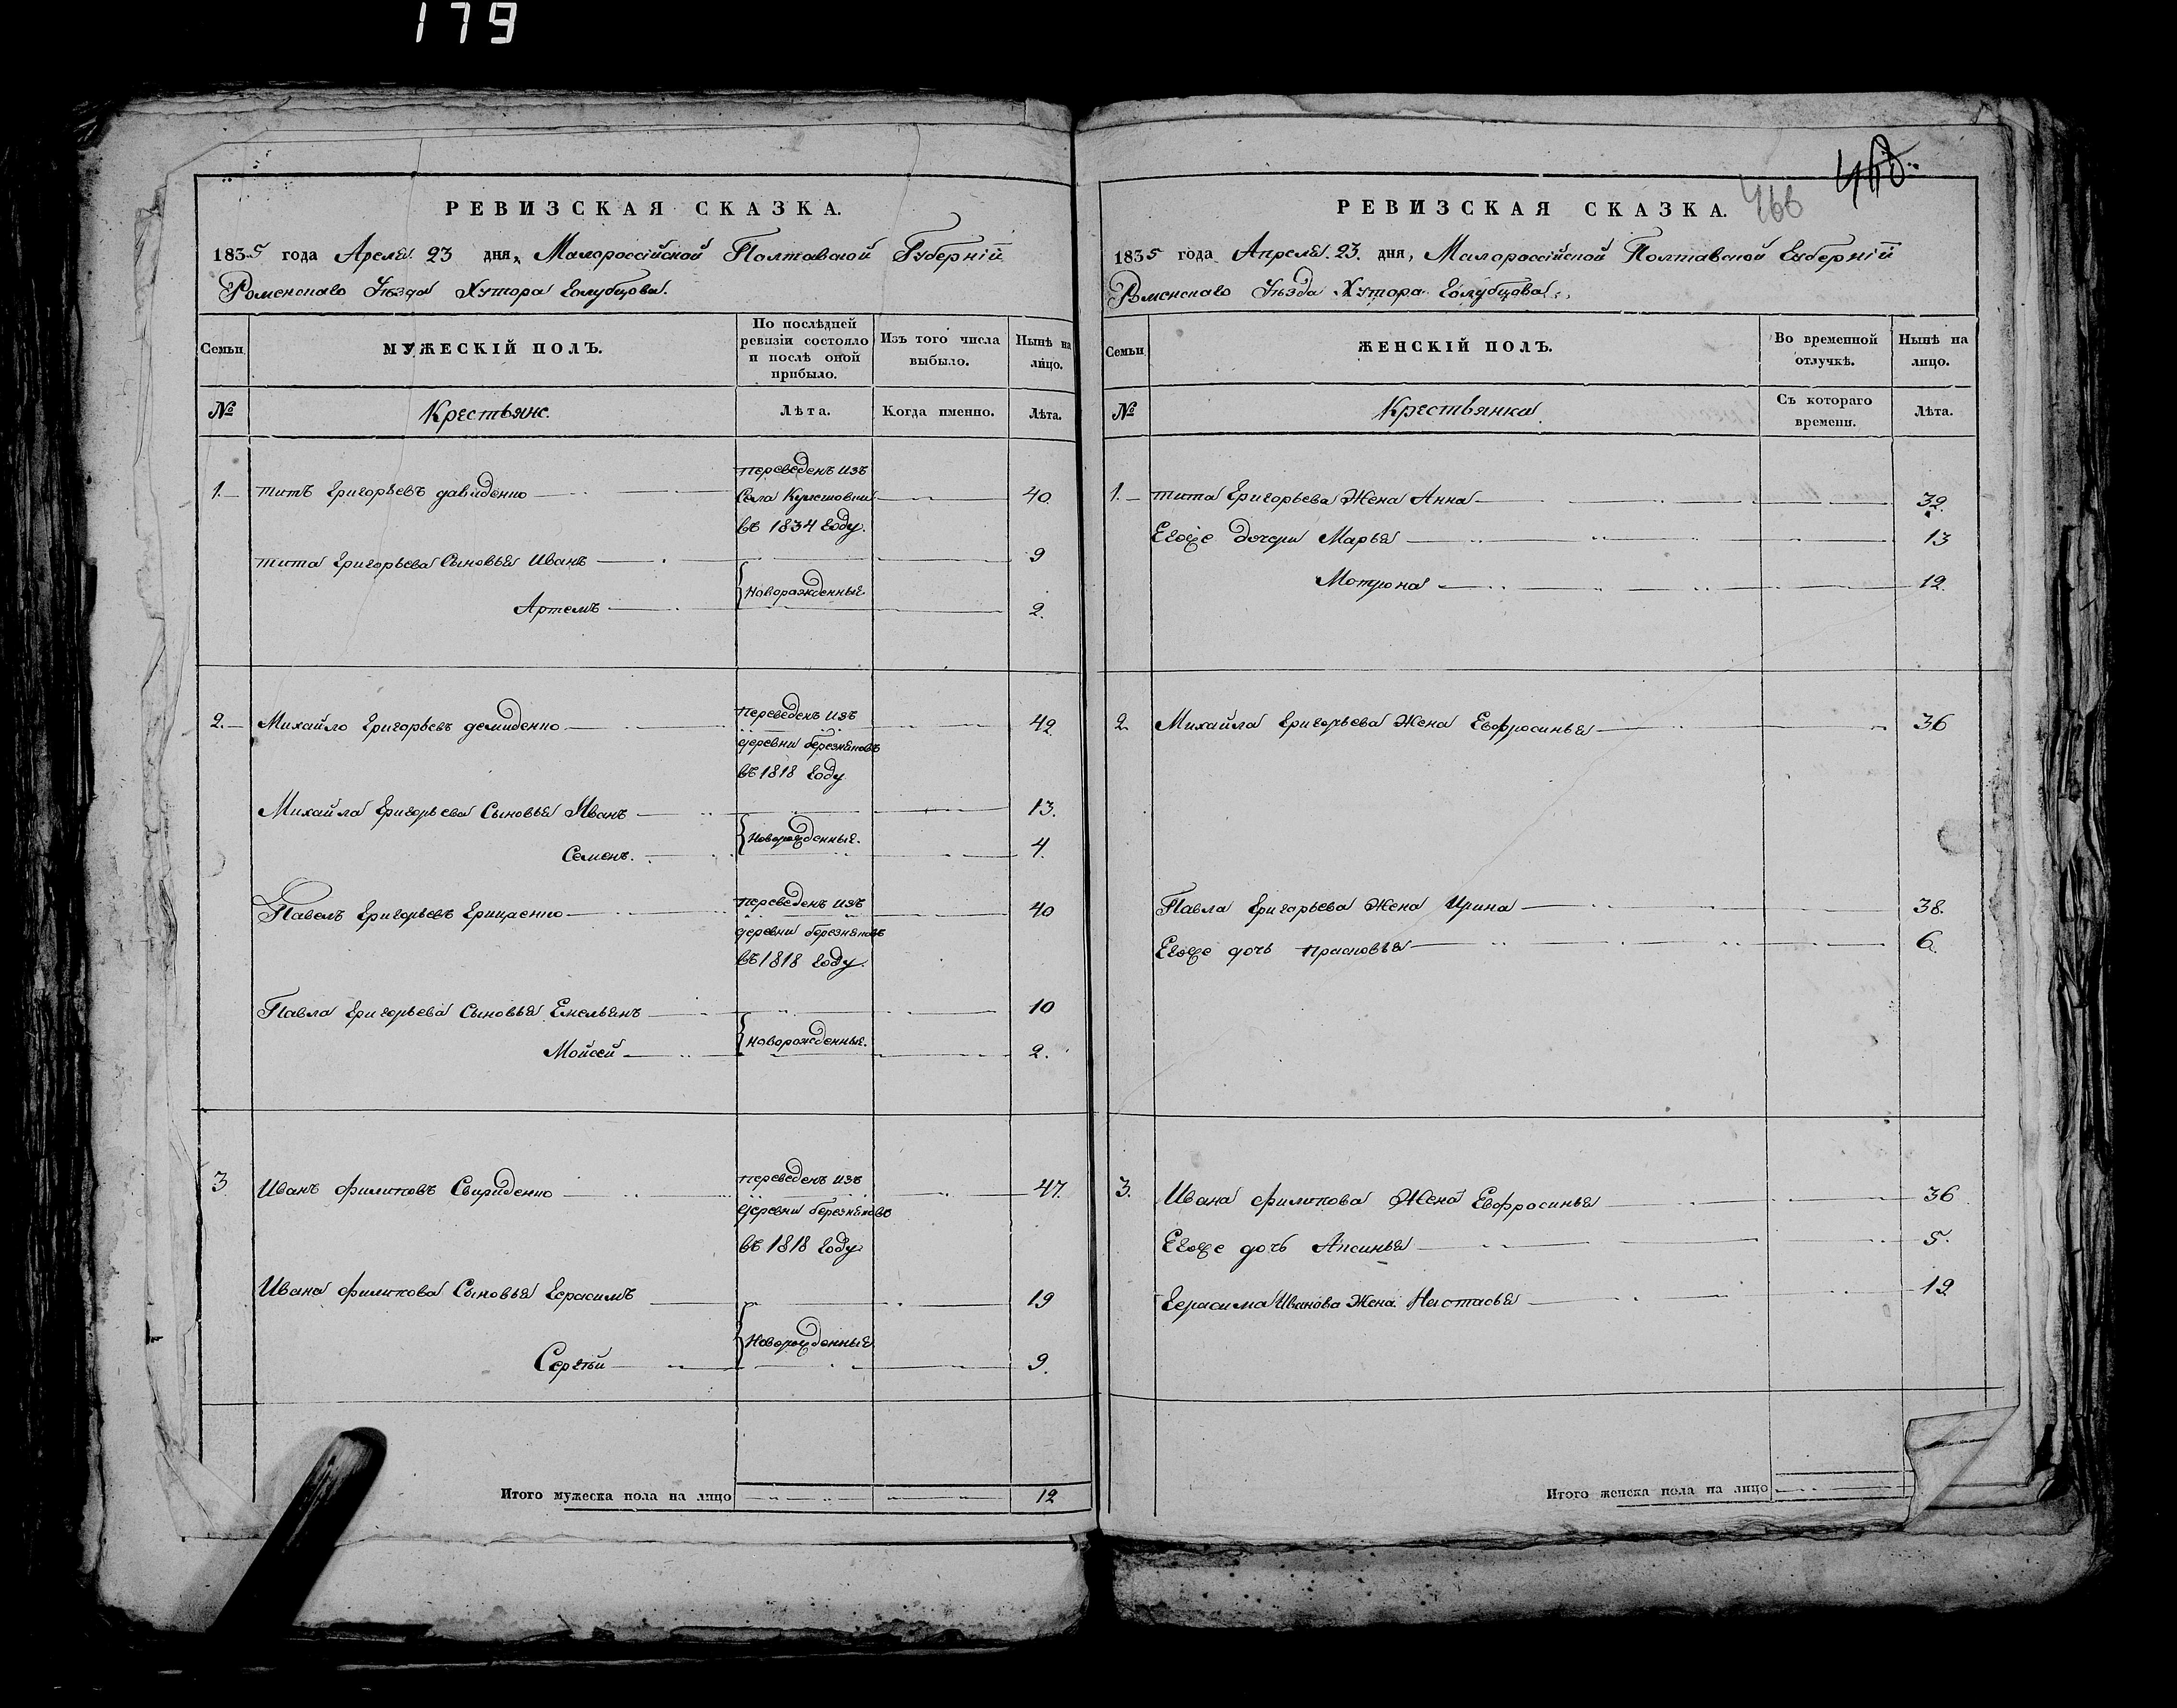 179
РЕВИЗСКАЯ СКАЗКА.
1835 года Апреля 23 дня, Малороссійской Полтавской Губерніи
Роменскаго Уѣзда Хутора Голубцова.
Семьи
МУЖЕСКІЙ ПОЛЪ.
По послѣдней ревизіи состояло и послѣ оной прибыло.
Изъ того числа выбыло.
Нынѣ на лицо.
№
Крестьяне.
Лѣта.
Когда именно.
Лѣта.
переведенъ изъ
1. титъ Григорьевъ давиденко Села 40
въ 1834 году.
тита Григорьева Сыновья Иванъ 9
новорожденныя
Артемъ 2.
2. Михайло Григорьевъ демиденко переведенъ изъ 42.
деревни березняковъ
въ 1818 году
Михайла Григорьева Сыновья Иванъ 13.
новорожденныя.
Семенъ. 4.
Павелъ Григорьевъ Грищенко переведенъ изъ 40
деревни березняковъ
въ 1818 году.
Павла Григорьева Сыновья Емельянъ 10
новорожденныя.
Мойсей 2.
3 Иванъ Филиповъ Свириденко переведенъ изъ 47.
деревни березняковъ
въ 1818 году
Ивана Филипова Сыновья Герасимъ 19
Новорожденныя
Сергѣй 9.
Итого мужеска пола на лицо 12
466
РЕВИЗСКАЯ СКАЗКА.
1835 года Апреля 23. дня, Малороссійской Полтавской Губерніи
Роменскаго Уѣзда Хутора Голубцова.
Семьи
ЖЕНСКІЙ ПОЛЪ.
Во временной отлучкѣ.
Нынѣ на лицо.
№
Крестьянки
Съ котораго времени.
Лѣта.
1. тита Григорьева Жена Анна 32.
Егоже дочери Марья 13
Мотрона 12.
2 Михайла Григорьева Жена Евфросинья 36
Павла Григорьева Жена Ирина 38.
Егоже дочь Прасковья 6.
3. Ивана Филипова Жена Евфросинья 36
Егоже дочь Аксинья 5.
Герасима Иванова Жена Настасья 19.
Итого женска пола на лицо